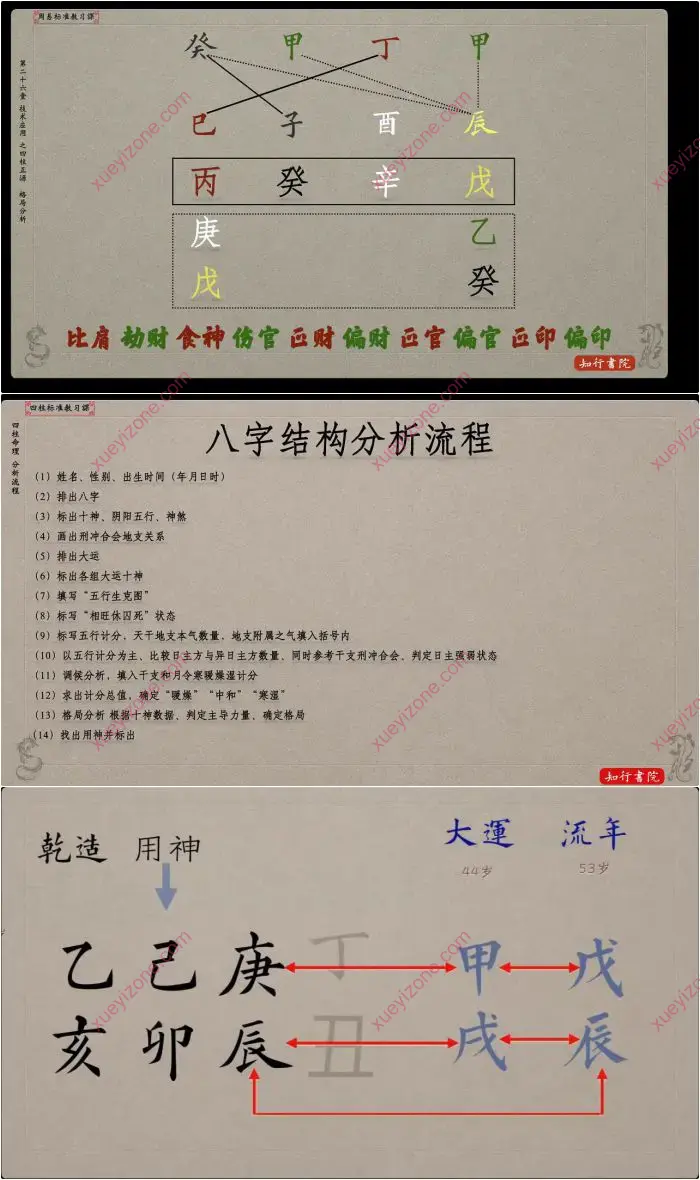 周易标准教习課
第二十六章 技术应用 之四柱正源 格局分析
癸 甲 丁 甲
巳 子 酉 辰
丙 癸 辛 戊
庚 乙
戊 癸
比肩 劫财 食神 伤官 正财 偏财 正官 偏官 正印 偏印
知行書院
四柱标准教习課
四柱命理 分析流程
八字结构分析流程
(1) 姓名、性别、出生时间（年月日时）
(2) 排出八字
(3) 标出十神、阴阳五行、神煞
(4) 画出刑冲合会地支关系
(5) 排出大运
(6) 标出各组大运十神
(7) 填写“五行生克图”
(8) 标写“相旺休囚死”状态
(9) 标写五行计分，天干地支本气数量，地支附属之气填入括号内
(10) 以五行计分为主、比较日主方与异日主方数量、同时参考干支刑冲合会、判定日主强弱状态
(11) 调候分析，填入干支和月令寒暖燥湿计分
(12) 求出计分总值，确定“暖燥”“中和”“寒湿”
(13) 格局分析 根据十神数据、判定主导力量、确定格局
(14) 找出用神并标出
知行書院
乾造 用神 大運 流年
44岁 53岁
乙 己 庚 丁 甲 戊
亥 卯 辰 丑 戌 辰
xueyizone.com
xueyizone.com
xueyizone.com
xueyizone.com
xueyizone.com
xueyizone.com
xueyizone.com
xueyizone.com
xueyizone.com